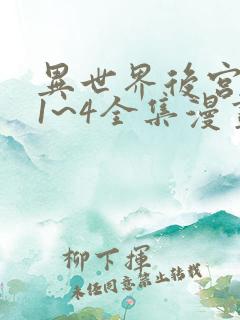 異世界後宮
1~4全集漫
柳下揮
未经同意禁止转载